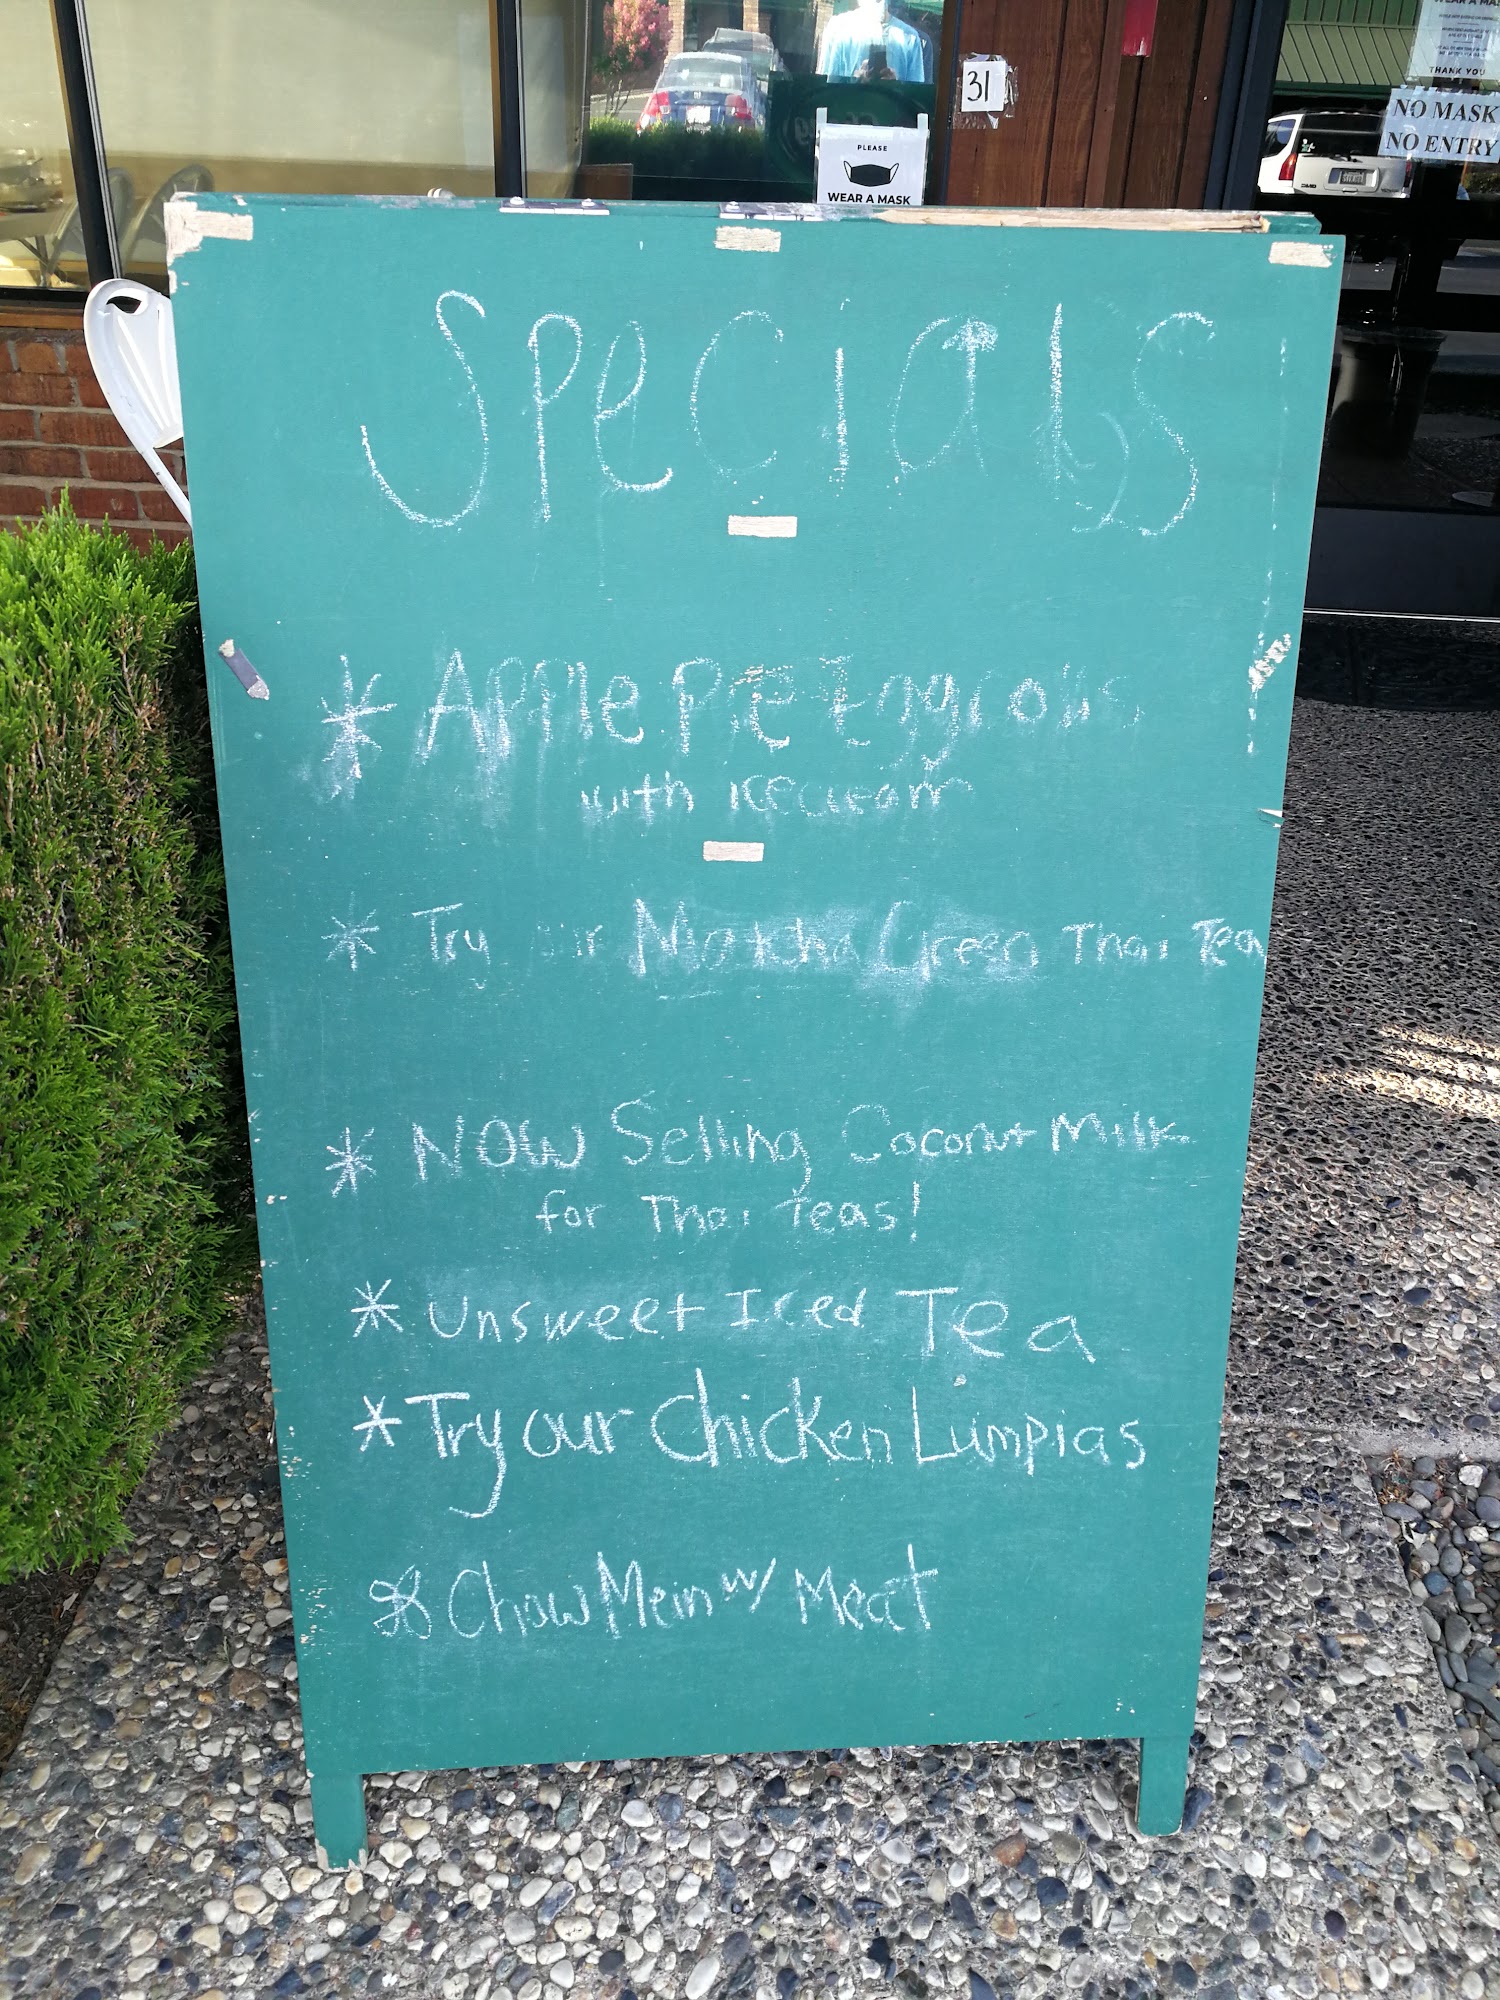 WEAR A MASK
THANK YOU
NO MASK
NO ENTRY
31
PLEASE
WEAR A MASK
Specials
* Apple Pie Eggrolls
with icecream
* Try our Matcha Green Thai Tea
* NOW Selling Coconut Milk
for Thai teas!
* Unsweet Iced Tea
* Try our Chicken Lumpias
* Chow Mein w/ Meat